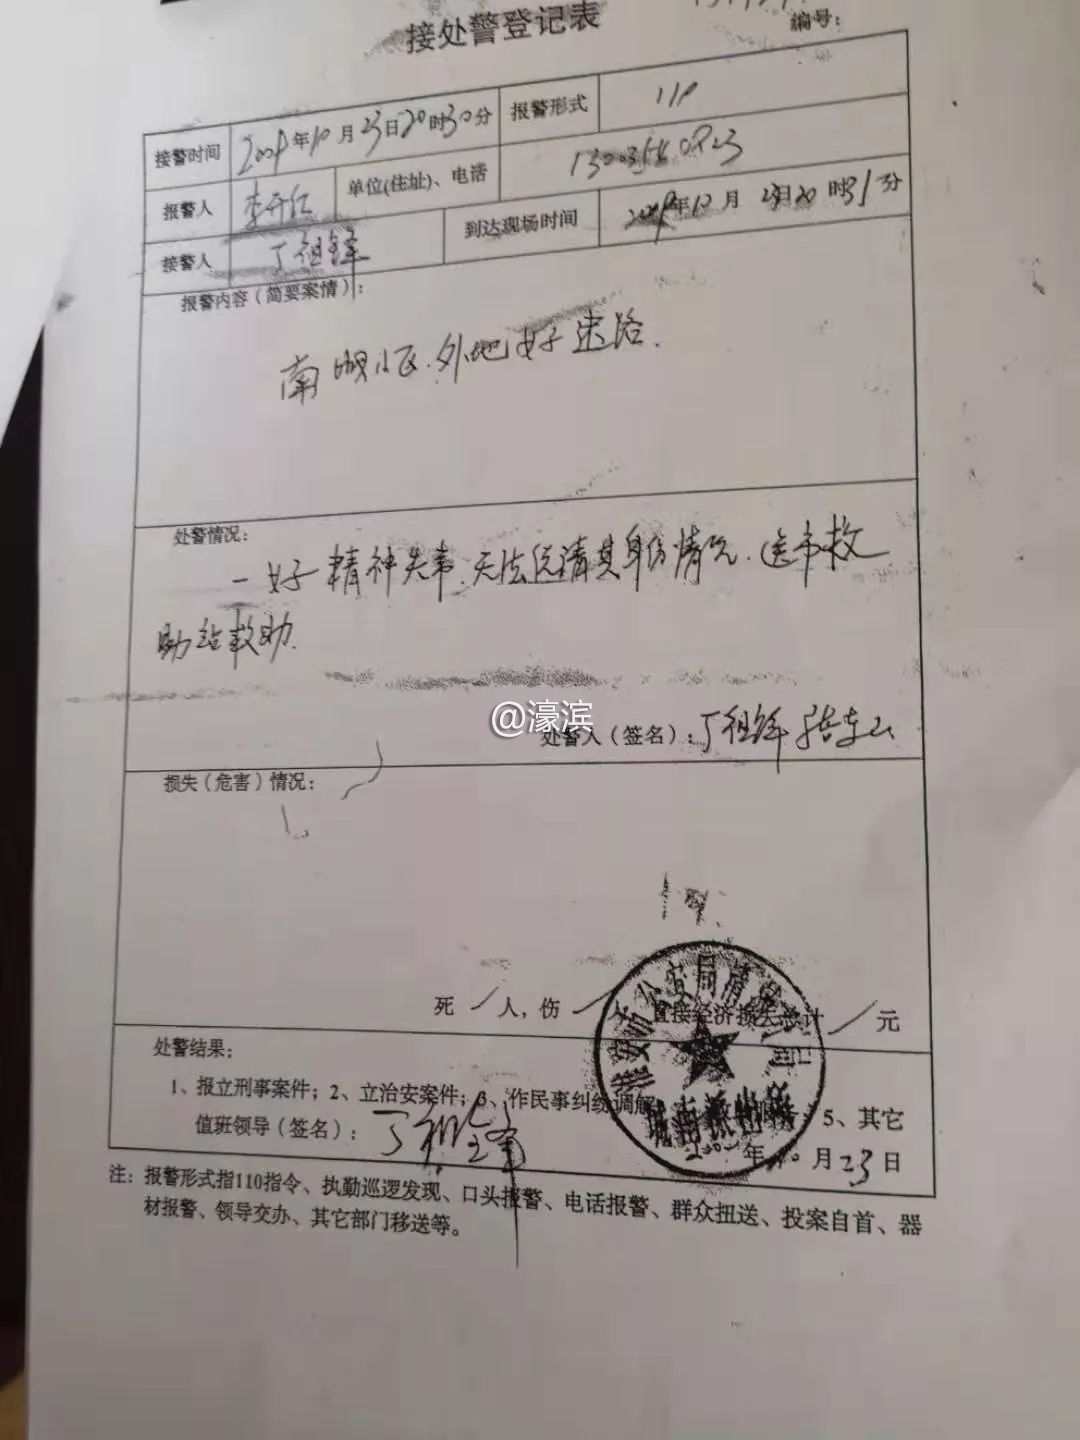 接处警登记表
编号：
接警时间 年10月23日20时30分 报警形式 110
报警人 李开红 单位(住址)、电话
接警人 丁祖锋 到达现场时间 年10月23日20时31分
报警内容（简要案情）：
南 小区.外地女子迷路.
处警情况：
一女子精神失常.无法说清其身份情况.送市救
助站救助.
@濠滨
处警人（签名）：丁祖锋
损失（危害）情况：
死／人，伤／ 直接经济损失总计／元
淮安市公安局清 分局
城南派出所
处警结果：
1、报立刑事案件；2、立治安案件；3、作民事纠纷调解 ；5、其它
值班领导（签名）：丁祖锋
年10月23日
注：报警形式指110指令、执勤巡逻发现、口头报警、电话报警、群众扭送、投案自首、器
材报警、领导交办、其它部门移送等。